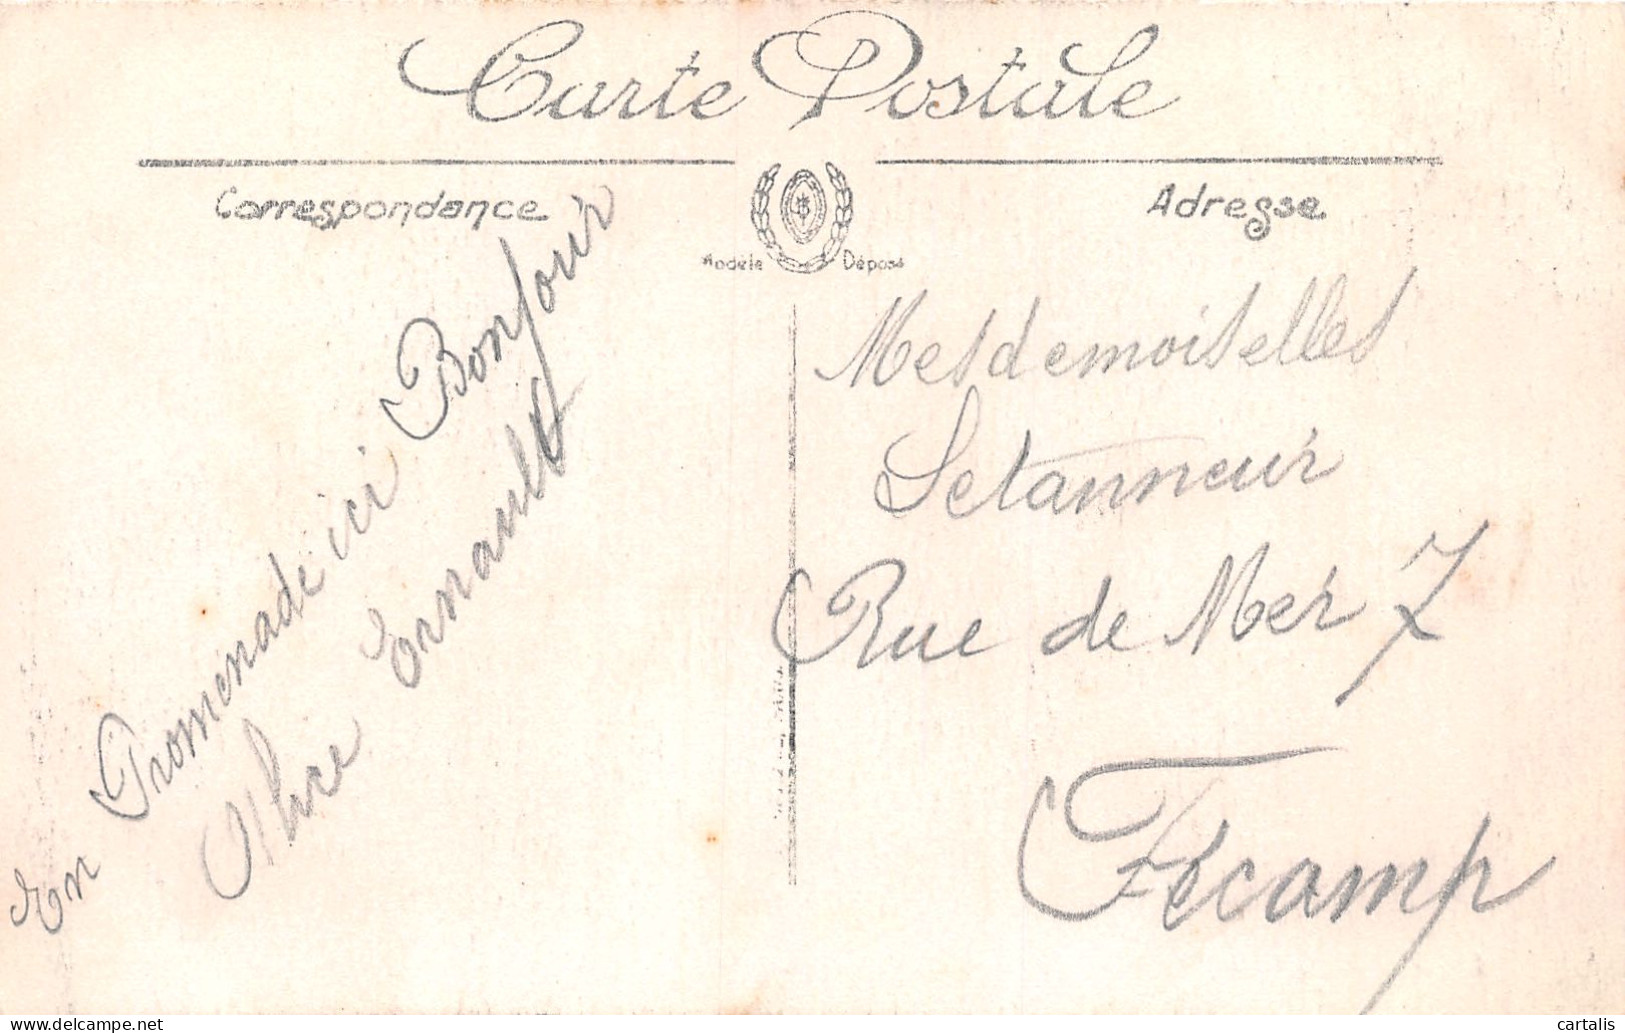 Carte Postale
Correspondance
Adresse
Modèle Déposé
En Promenade ici Bonjour
Ernault
Mesdemoiselles
Letanneur
Rue de Mer 7
Fécamp
cartalis
delcampe.net